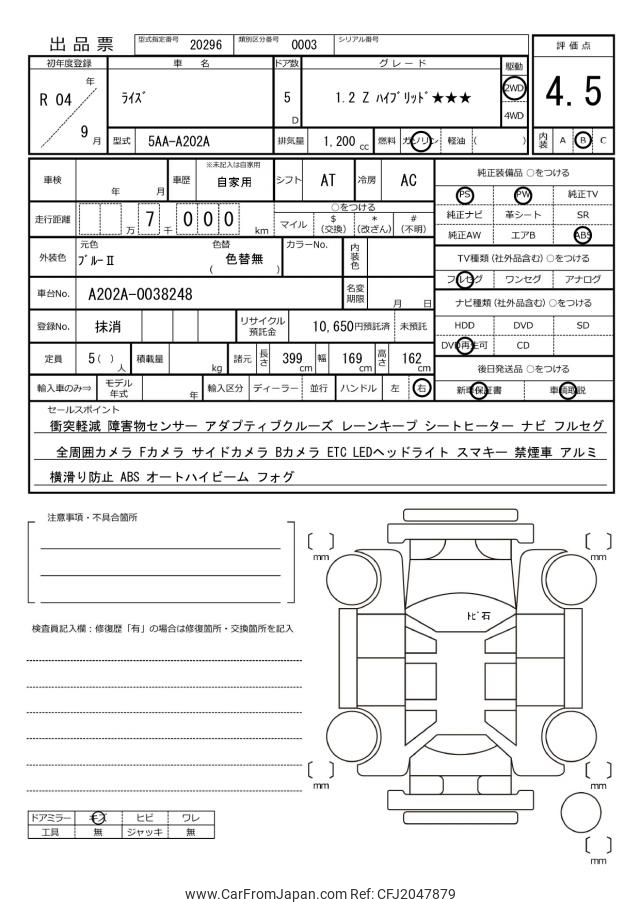 出品票 型式指定番号 20296 類別区分番号 0003 シリアル番号
評価点
4.5
内装 A B C
初年度登録 車名 ドア数 グレード 駆動
R 04 年 ﾗｲｽﾞ 5 D 1.2 Z ﾊｲﾌﾞﾘｯﾄﾞ★★★ 2WD
9 月 4WD
型式 5AA-A202A 排気量 1,200 cc 燃料 ガソリン 軽油 ( )
車検 年 月 車歴 ※未記入は自家用 自家用 シフト AT 冷房 AC
走行距離 万 7 千 0 0 0 km
○をつける
マイル $(交換) *(改ざん) #(不明)
外装色 元色 ﾌﾞﾙｰⅡ 色替 ( 色替無 ) カラーNo. 内装色
車台No. A202A-0038248 名変期限 月 日
登録No. 抹消 リサイクル預託金 10,650円預託済 未預託
定員 5 ( ) 人 積載量 kg 諸元 長さ 399 cm 幅 169 cm 高さ 162 cm
輸入車のみ⇒ モデル年式 年 輸入区分 ディーラー 並行 ハンドル 左 右
純正装備品 ○をつける
PS PW 純正TV
純正ナビ 革シート SR
純正AW エアB ABS
TV種類(社外品含む) ○をつける
フルセグ ワンセグ アナログ
ナビ種類(社外品含む) ○をつける
HDD DVD SD
DVD再生可 CD
後日発送品 ○をつける
新車保証書 車輌取説
セールスポイント
衝突軽減 障害物センサー アダプティブクルーズ レーンキープ シートヒーター ナビ フルセグ
全周囲カメラ Fカメラ サイドカメラ Bカメラ ETC LEDヘッドライト スマキー 禁煙車 アルミ
横滑り防止 ABS オートハイビーム フォグ
注意事項・不具合箇所
検査員記入欄：修復歴「有」の場合は修復箇所・交換箇所を記入
mm
mm
ﾄﾋﾞ石
mm
mm
mm
ドアミラー キズ ヒビ ワレ
工具 無 ジャッキ 無
www.CarFromJapan.com Ref: CFJ2047879